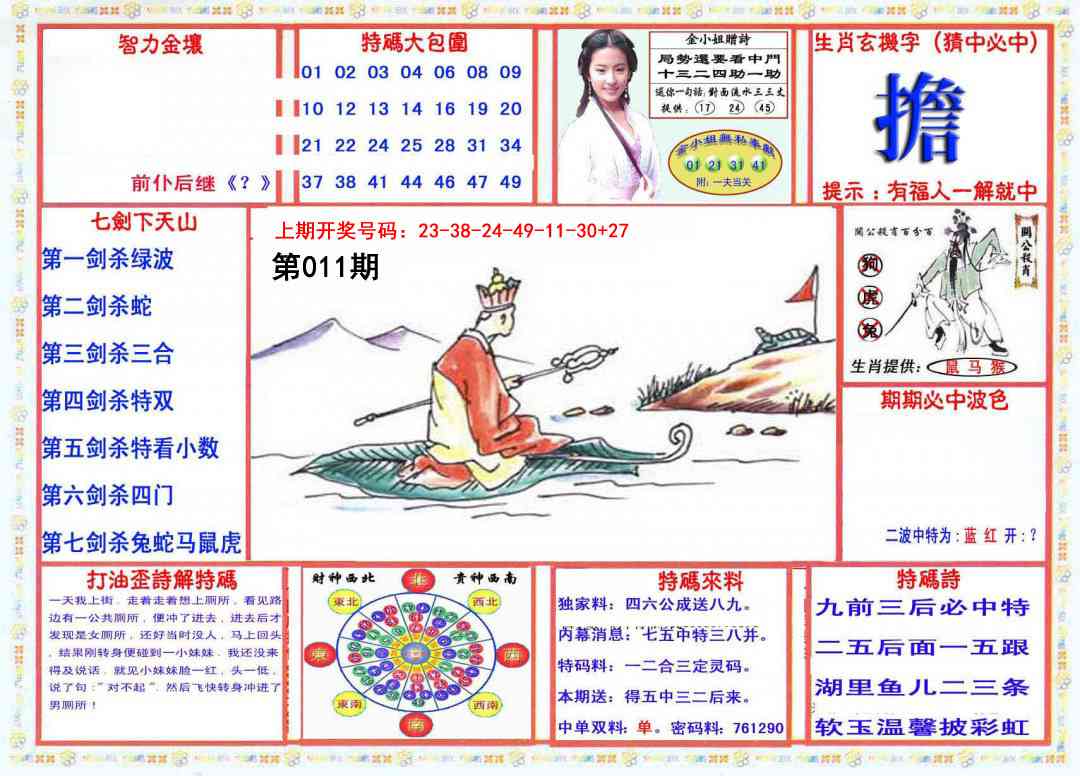 智力金壤
前仆后继《？》
特碼大包圍
01 02 03 04 06 08 09
10 12 13 14 16 19 20
21 22 24 25 28 31 34
37 38 41 44 46 47 49
金小姐贈詩
局勢還要看中門
十三二四助一助
送你一句話:對面流水三三丈
提供: 17 24 45
金小姐無私奉獻
01 21 31 41
附:一夫当关
生肖玄機字（猜中必中）
擔
提示：有福人一解就中
七劍下天山
第一剑杀绿波
第二剑杀蛇
第三剑杀三合
第四剑杀特双
第五剑杀特看小数
第六剑杀四门
第七剑杀兔蛇马鼠虎
上期开奖号码：23-38-24-49-11-30+27
第011期
關公殺肖百分百
關公殺肖
狗
虎
兔
生肖提供: 鼠 马 猴
期期必中波色
二波中特为:蓝 红 开:?
打油歪詩解特碼
一天我上街．走着走着想上厕所，看见路
边有一公共厕所，便冲了进去，进去后才
发现是女厕所，还好当时没人，马上回头
，结果刚转身便碰到一小妹妹．我还没来
得及说话．就见小妹妹脸一红，头一低，
说了句："对不起"．然后飞快转身冲进了
男厕所！
財神西北 貴神西南
北
東北 西北
東 西
東南 西南
南
特碼來料
独家料：四六公成送八九。
内幕消息：七五中特三八并。
特码料：一二合三定灵码。
本期送：得五中三二后来。
中单双料：单。密码料：761290
特碼詩
九前三后必中特
二五后面一五跟
湖里鱼儿二三条
软玉温馨披彩虹